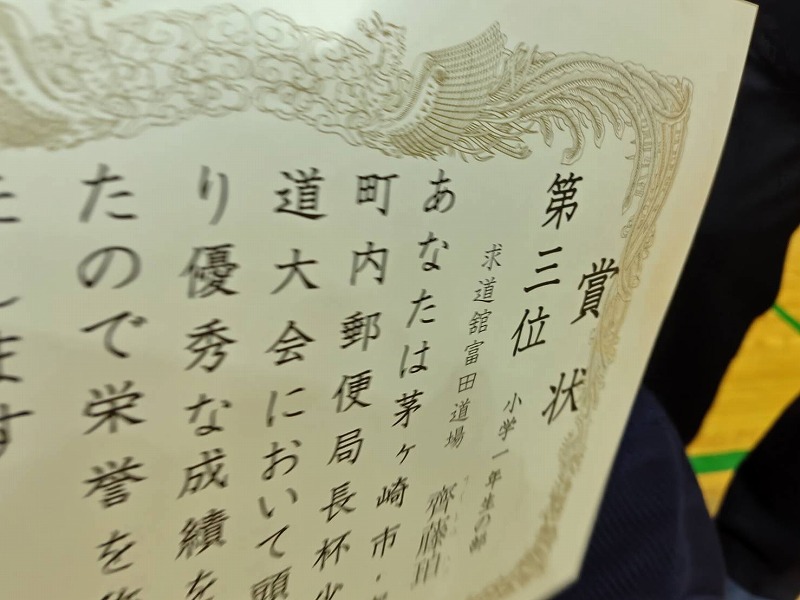 賞状
第三位 小学一年生の部
求道舘富田道場 齊藤
あなたは茅ヶ崎市・
町内郵便局長杯
道大会において
り優秀な成績を
たので栄誉を
たします